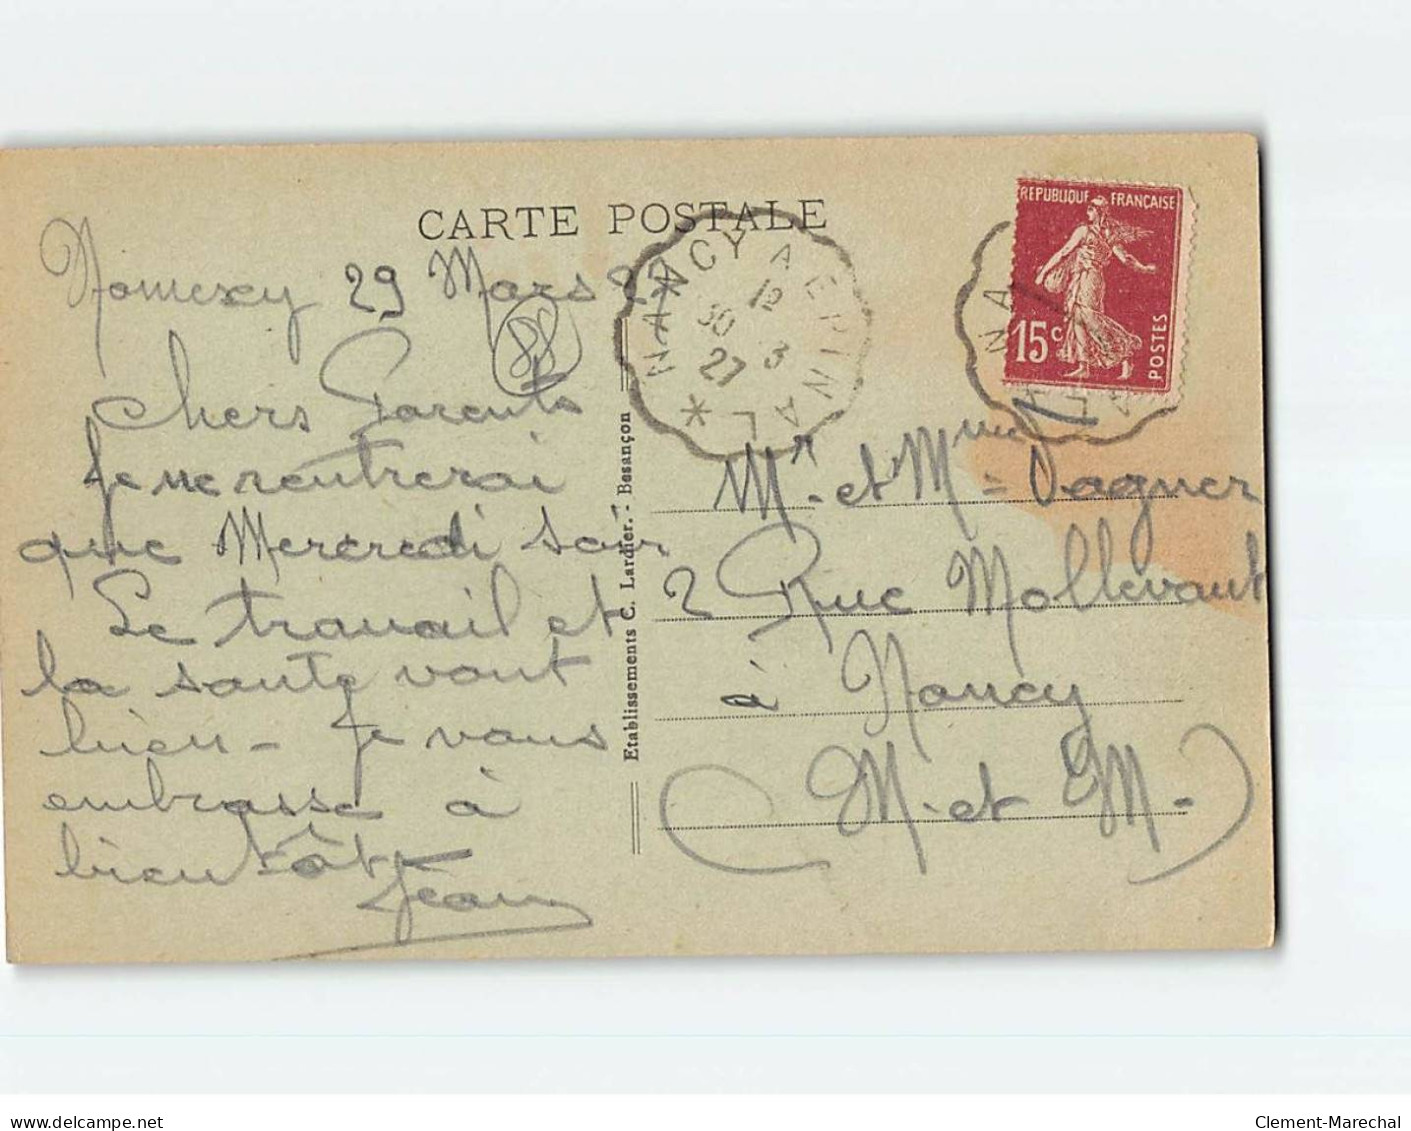 CARTE POSTALE
Nomexy 29 Mars 27
Chers Parents
Je ne rentrerai
que Mercredi soir
Le travail et
la santé vont
bien - Je vous
embrasse à
bientôt
Jean
Etablissements C. Lardier. - Besançon
NANCY A EPINAL
12
30 3
27
REPUBLIQUE FRANÇAISE
15c
POSTES
NA
Mr et Mme Vagner
2 Rue Mollevaut
à Nancy
M - et M -
Clement-Marechal